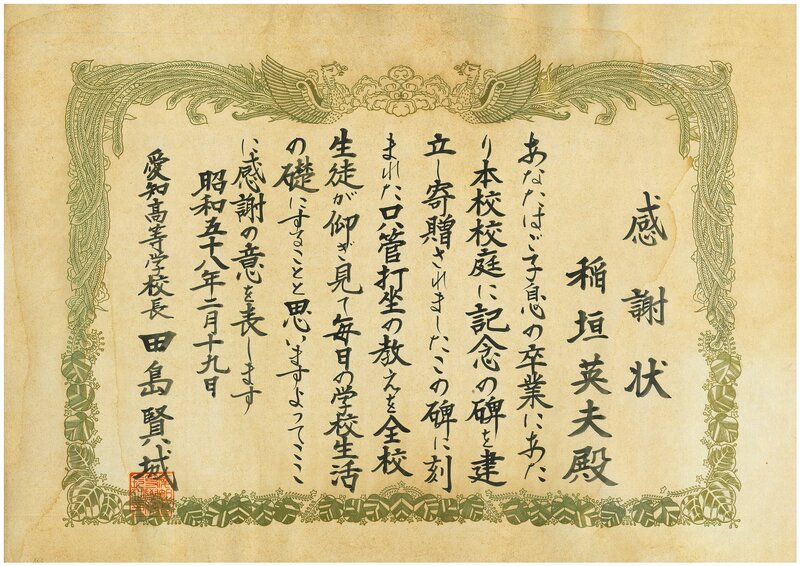 感謝状
稲垣英夫殿
あなたはご子息の卒業にあた
り本校校庭に記念の碑を建
立し寄贈されましたこの碑に刻
まれた只管打坐の教えを全校
生徒が仰ぎ見て毎日の学校生活
の礎にすることと思いますよってここ
に感謝の意を表します
昭和五十八年二月十九日
愛知高等学校長 田島賢城